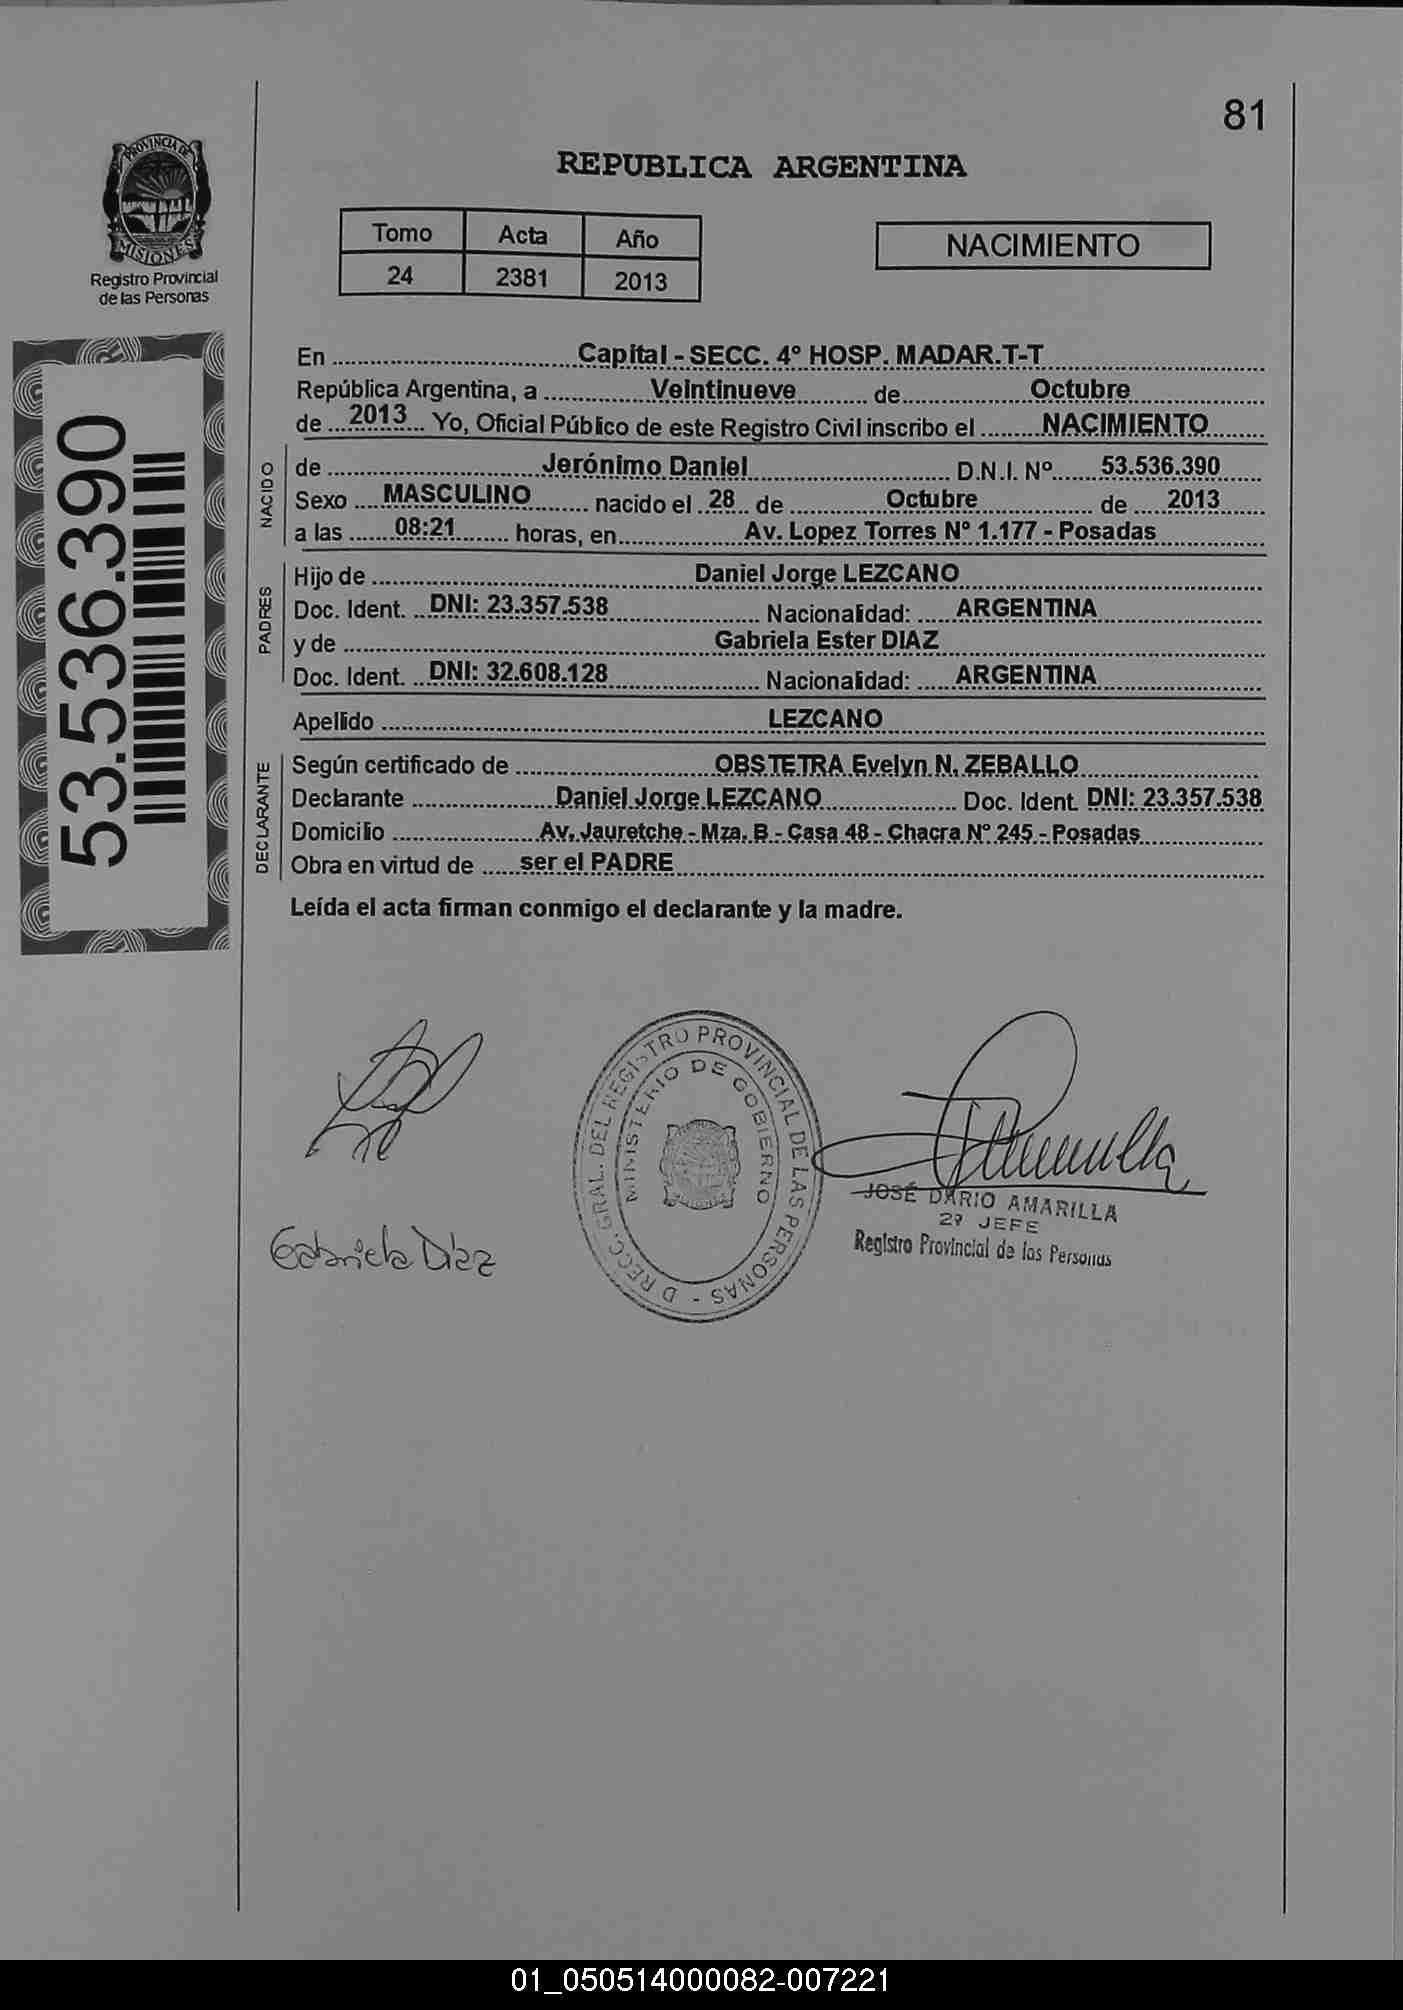 81
PROVINCIA DE
MISIONES
Registro Provincial
de las Personas
REPUBLICA ARGENTINA
Tomo Acta Año
24 2381 2013
NACIMIENTO
53.536.390
En ............ Capital - SECC. 4° HOSP. MADAR.T-T ............
República Argentina, a ............ Veintinueve ............ de ............ Octubre ............
de ... 2013 ... Yo, Oficial Público de este Registro Civil inscribo el ......... NACIMIENTO .........
NACIDO
de ............ Jerónimo Daniel ............ D.N.I. Nº ....... 53.536.390 .......
Sexo .... MASCULINO ......... nacido el . 28 .. de ............ Octubre ............ de .... 2013 .......
a las ....... 08:21 ......... horas, en ............ Av. Lopez Torres N° 1.177 - Posadas ............
PADRES
Hijo de ............ Daniel Jorge LEZCANO ............
Doc. Ident. .. DNI: 23.357.538 ............ Nacionalidad: ..... ARGENTINA ............
y de ............ Gabriela Ester DIAZ ............
Doc. Ident. .. DNI: 32.608.128 ............ Nacionalidad: ..... ARGENTINA ............
Apellido ............ LEZCANO ............
DECLARANTE
Según certificado de ............ OBSTETRA Evelyn N. ZEBALLO ............
Declarante ............ Daniel Jorge LEZCANO ............ Doc. Ident. DNI: 23.357.538
Domicilio ............ Av. Jauretche - Mza. B - Casa 48 - Chacra N° 245 - Posadas ............
Obra en virtud de ...... ser el PADRE ............
Leída el acta firman conmigo el declarante y la madre.
DRECC. GRAL. DEL REGISTRO PROVINCIAL DE LAS PERSONAS -
MINISTERIO DE GOBIERNO
JOSÉ DARIO AMARILLA
2º JEFE
Registro Provincial de las Personas
Gabriela Diaz
01_050514000082-007221